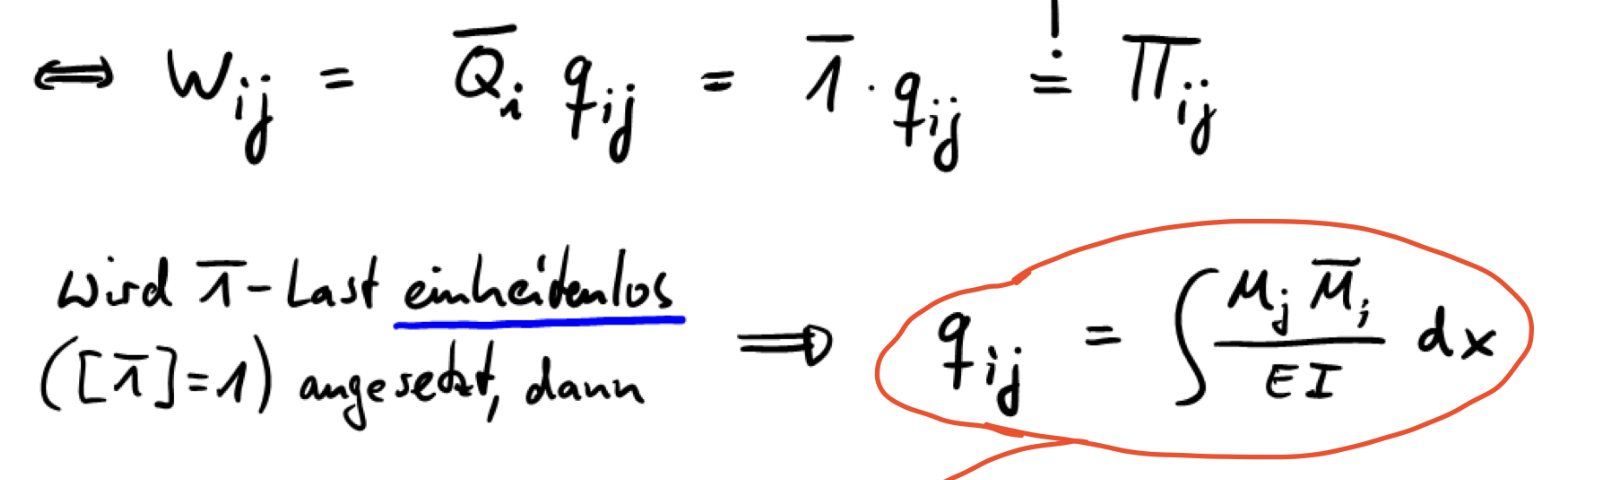 ⟺ W_ij = Q̄_i q_ij = 1̄ · q_ij =! Π̄_ij
Wird 1̄-Last einheitenlos
([1̄]=1) angesetzt, dann ⟹ q_ij = ∫ M_j M̄_i / EI dx